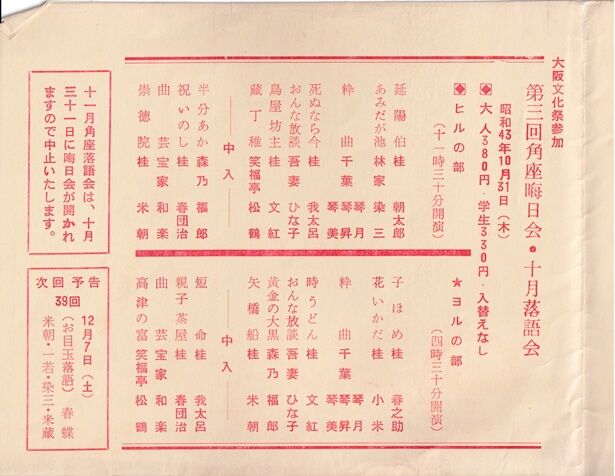 大阪文化祭参加
第三回角座晦日会・十月落語会
昭和43年10月31日（木）
◆大人380円・学生330円・入替えなし
◆ヒルの部（十一時三十分開演）
延陽伯 桂朝太郎
あみだが池 林家染三
粋曲 千葉琴月 琴昇 琴美
死ぬなら今 桂我太呂
おんな放談 吾妻ひな子
鳥屋坊主 桂文紅
蔵丁稚 笑福亭松鶴
中入
半分あか 森乃福郎
祝いのし 桂春団治
曲芸 宝家和楽
崇徳院 桂米朝
★ヨルの部（四時三十分開演）
子ほめ 桂春之助
花いかだ 桂小米
粋曲 千葉琴月 琴昇 琴美
時うどん 桂文紅
おんな放談 吾妻ひな子
黄金の大黒 森乃福郎
矢橋船 桂米朝
中入
短命 桂我太呂
親子茶屋 桂春団治
曲芸 宝家和楽
高津の富 笑福亭松鶴
十一月角座落語会は、十月
三十一日に晦日会が開かれ
ますので中止いたします。
次回予告
39回
12月7日（土）
（お目玉落語）春蝶
米朝・一若・染三・米蔵